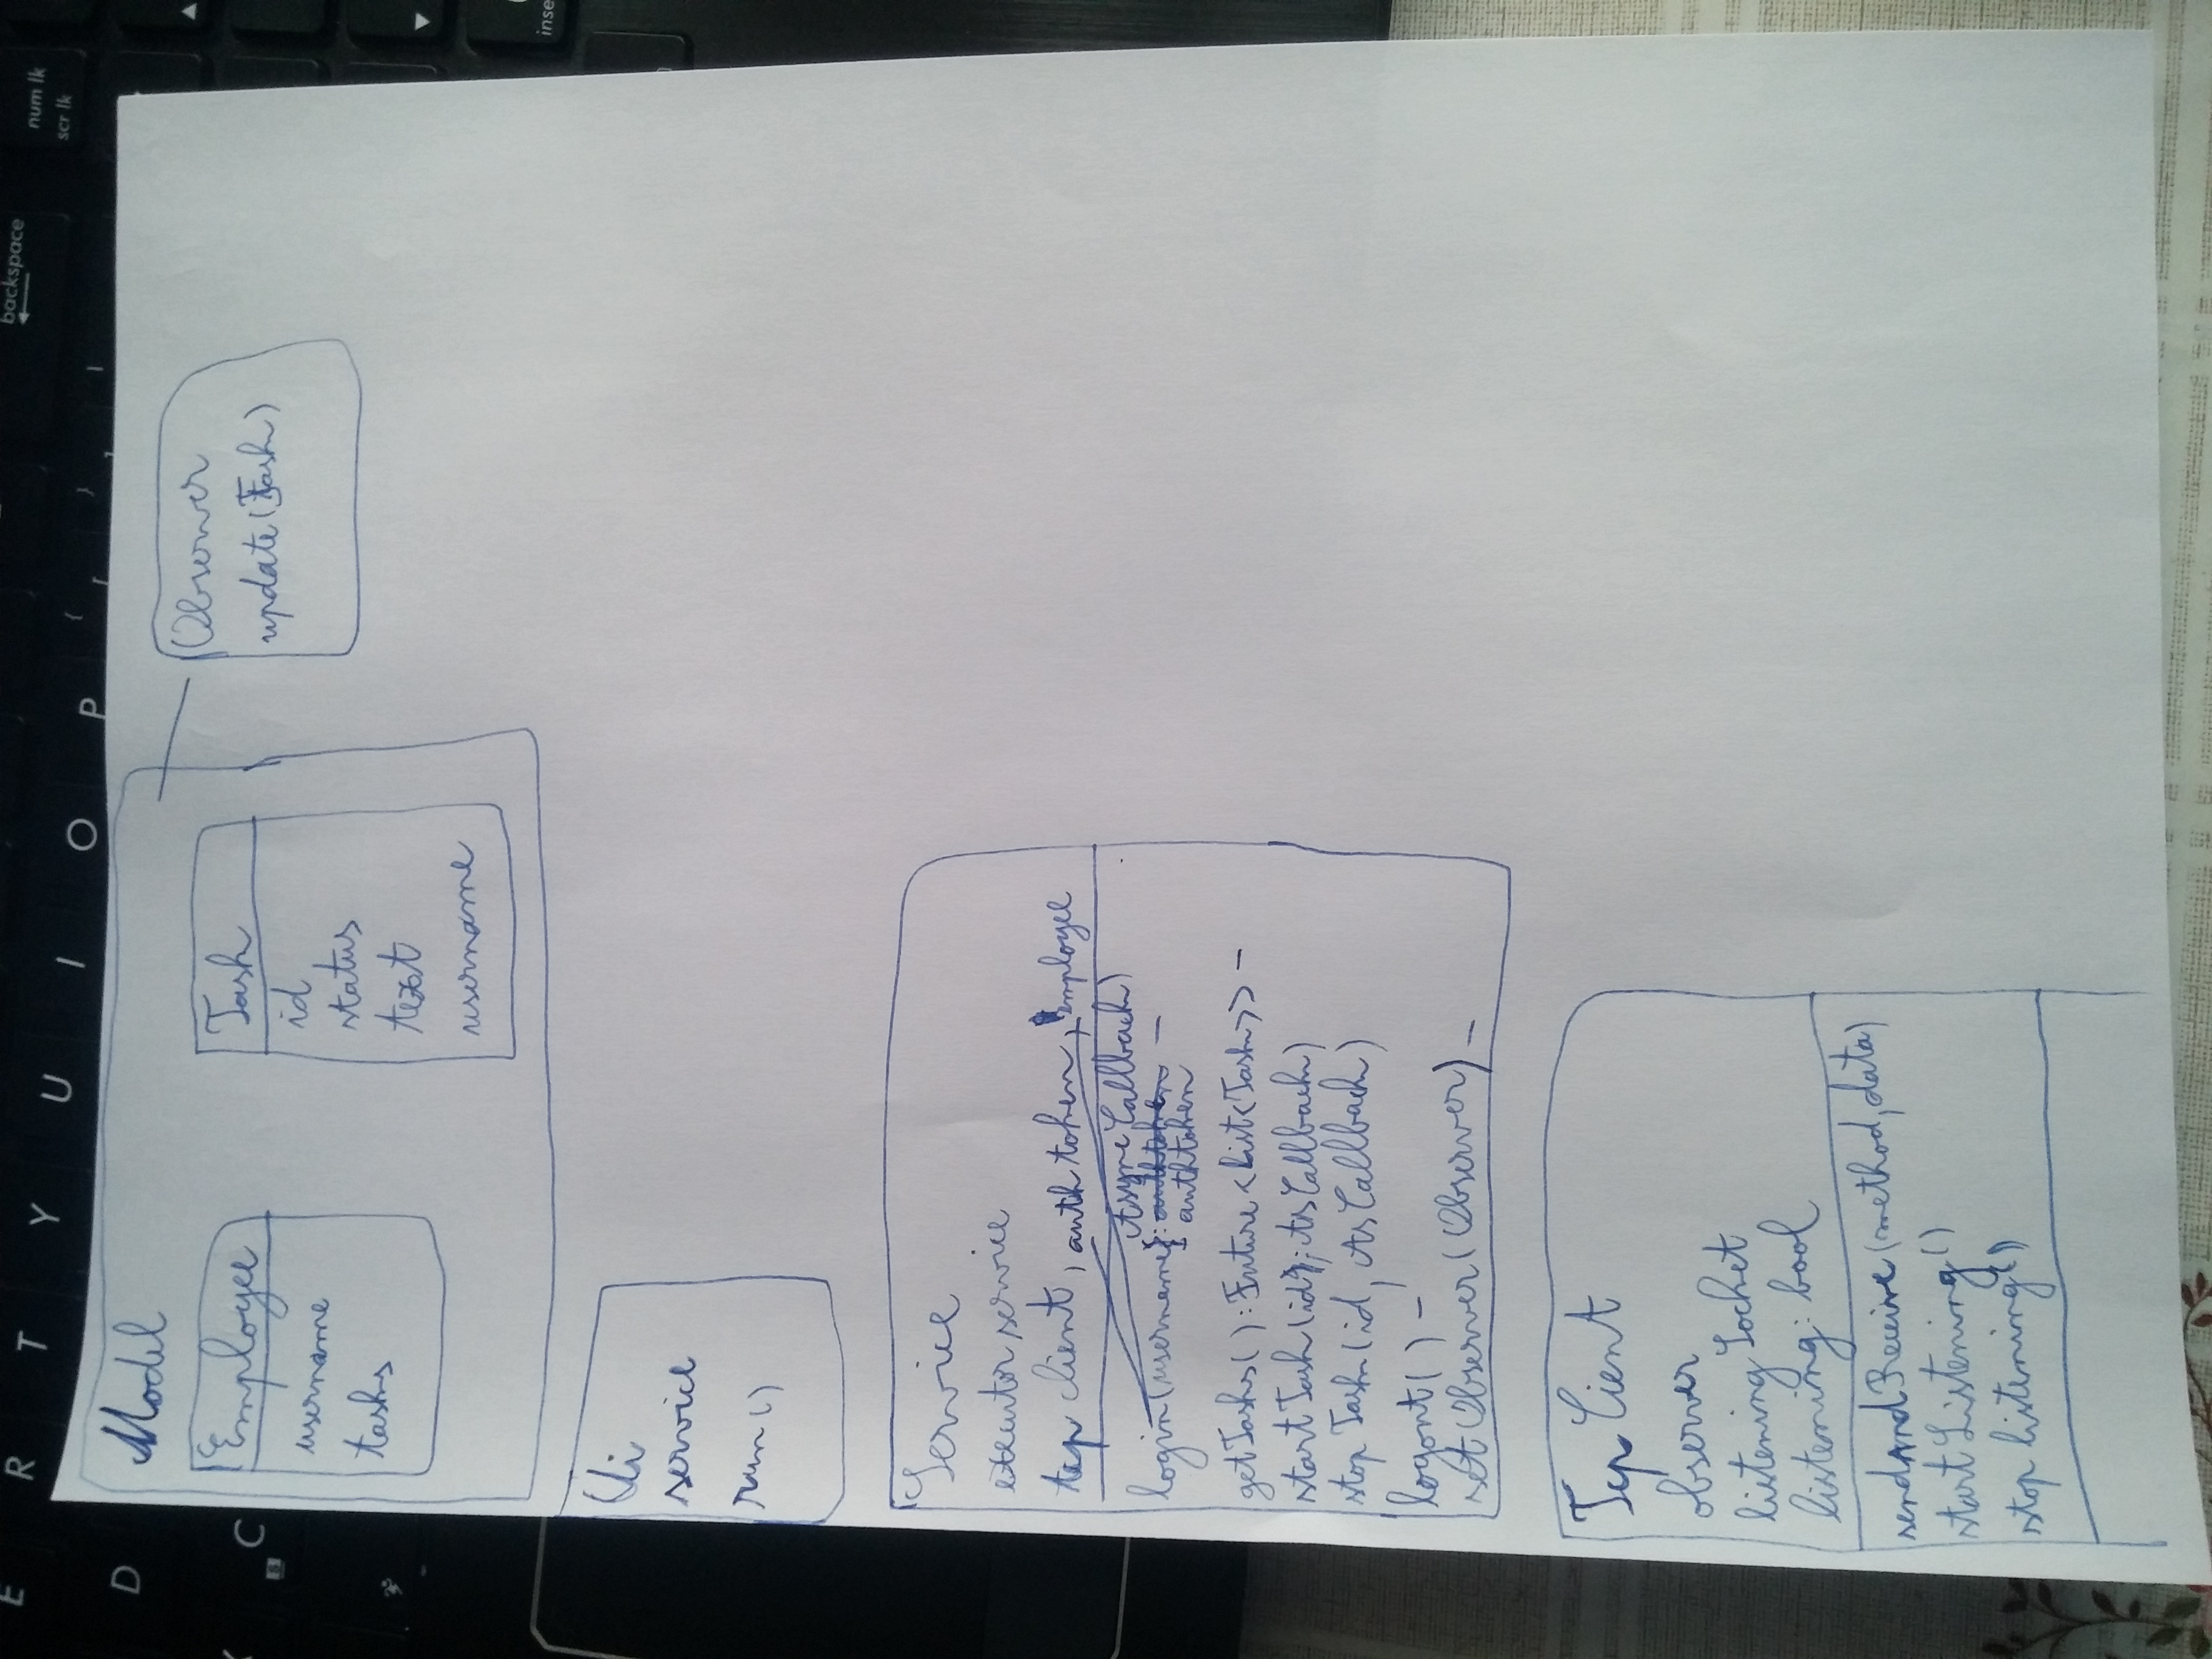 E R T Y U I O P { [ } ] |
backspace
num lk
scr lk
D
C
inse
Model
Employee
username
tasks
Task
id
status
text
username
Observer
update(Task)
Ui
service
run()
Service
executor service
tcp client, auth token, employee
AsyncCallback)
login(username): authtoken —
authtoken
getTasks( ): Future<List<Task>> —
startTask(id, AsCallback)
stop Task(id, AsCallback)
logout( ) —
setObserver(Observer) —
Tcp Cient
observer
listening Socket
listening: bool
sendAndReceive(method, data)
start Listening()
stop listening()